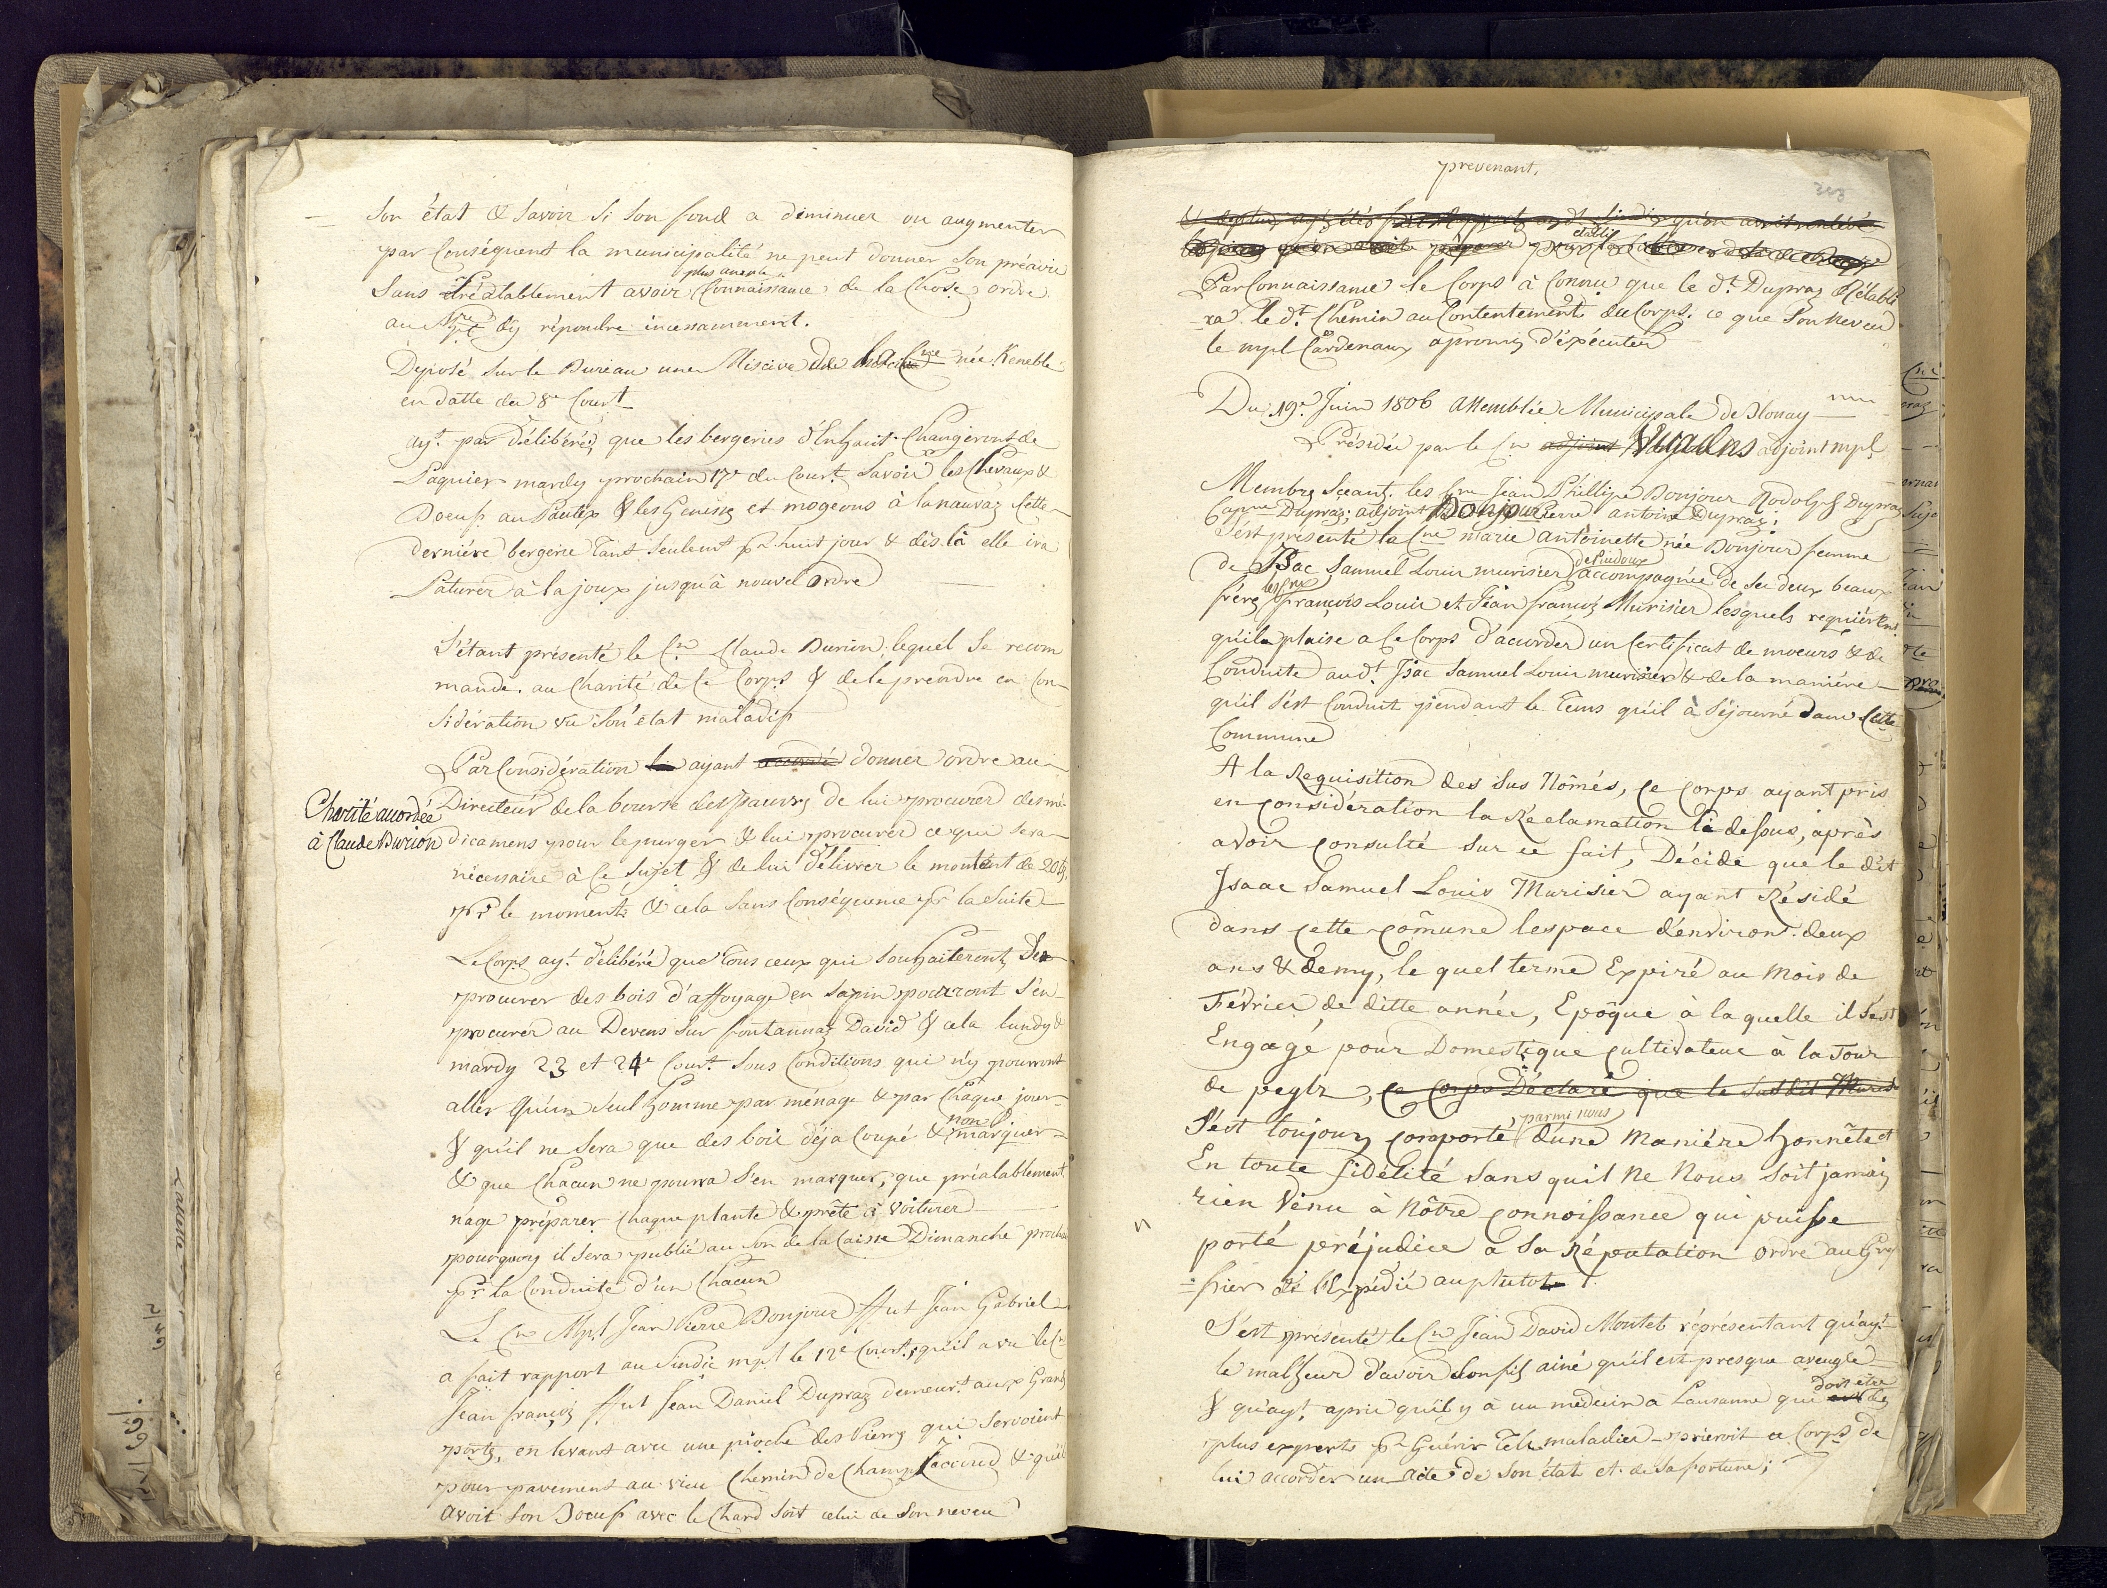 son état & savoir si son fond a diminuer ou augmenter
par Conséquent la municipalité ne peut donner son préavis
sans Préalablement avoir plus ample Connaissance de la Chose, ordre
au d'y répondre incessamment.
Déposé sur le Bureau une Miscive de la Cne née Keneble
en datte du 8e Court
ayt par Délibéré, que les bergeries d'Enhaut Changeront de
Paquier mardy prochain 17e du Court Savoir les Chevaux &
Boeufs au & les Genises et mogeons à la nauvaz Cette
dernière bergerie tant seulemt pr huit jour & dès là elle ira
Paturer à la joux jusqu'à nouvel Ordre
S'étant présenté le Cn Claude Burion, lequel Se recom
mande au Charité de Ce Corps & de le prendre en Con-
sidération vu son état maladif
Par Considération ayant accordé donner ordre au
Charité accordée
à Claude Burion
Directeur de la bourse des pauvres de lui procurer des mé-
dicamens pour le purger & lui procurer ce qui sera
nécessaire à Ce Sujet & de lui délivrer le montant de 20 bz
pr le moment & cela Sans Conséquence pr la Suite
Le Corps ayt délibéré que tous ceux qui Souhaiteront Se
procurer des bois d'affoyage en sapin pourront s'en
procurer au Devens sur fontannaz David & cela lundy &
mardy 23 et 24e Court Sous Conditions qui n'y pourront
aller qu'un Seul homme par ménage & par Chaque jour
& qu'il ne Sera que des bois déja Coupé & non marquer
& que Chacun ne pourra s'en marquer, que préalablement
n'age préparer Chaque plante & prête à Voiturer
pourquoy il sera publié au Son de la Caisse Dimanche procha
pr la Conduite d'un Chacun
Le Cn Mpl Jean Pierre Bonjour ffut Jean Gabriel
a fait rapport au Sindic mpl le 12e Court, qu'il a vu le Cn
Jean françois ffut Jean Daniel Dupraz demeurt aux Grands
ports, en levant avec une pioche des Pierres qui Servoient
pour pavement au vieu Chemin de Champ & qu'il
avoit son Boeuf avec le Chard soit celui de son neveu
prevenant,
313
établi
Par Connaissance le Corps à Connu que le dt Dupraz Rétabli
ra le dt Chemin au Contentement du Corps. ce que Son Neveu
le mpl Cardenaux a promis d'éxécuter
Du 19e Juin 1806 Assemblée Municipale de Blonay
Présidée par le Cn adjoint Vuadens adjoint mpl
Membres Sceant. les Cns Jean Phillipe Bonjour Rodolph Dupraz
Dupraz, adjoint Bonjour Pierre Antoine Dupraz;
S'est présenté la Cne marie Antoinette née Bonjour femme
de Isac Samuel Louis murisier accompagnée de ses deux beaux
frères les Cns François Louis et Jean françois Murisier lesquels requièrent
qu'il plaise a Ce Corps d'accorder un Certificat de moeurs & de
Conduite au dt Isac Samuel Louis murisier & de la manière
qu'il s'est Conduit pendant le tems qu'il à Séjourné dans Cette
Commune
A la Requisition des sus Nômés, Ce Corps ayant pris
en Considération la Réclamation là dessus, après
avoir Consulté sur ce fait, Décide que le dit
Isaac Samuel Louis Murisier ayant Résidé
dans Cette Cômune lespace d'environt deux
ans & demy, le quel terme Expiré au Mois de
Février de ditte année, Epoque à la quelle il S'est
Engagé pour Domestique Cultivateur à la Tour
de peylz, Ce Corps Déclare que le Susdit Muris
S'est toujours Comporté parmi nous d'une Maniére honnête et
En toute fidélité sans quil Ne Nous soit jamais
rien Venu à Nôtre Connoissance qui puisse
porté préjudice à Sa Réputation ordre au Gref
=fier de l'Expédié au plutot
S'est présenté le Cn Jean David Montet réprésentant qu'ayt
le malheur d'avoir Son fils ainé qu'il est presque aveugle
& qu'ayt apris qu'il y à un médecin a Lausanne qui doit être des
plus experts pr Guérir tels maladies prieroit ce Corps de
lui accorder un Acte de Son état et de Sa fortune;